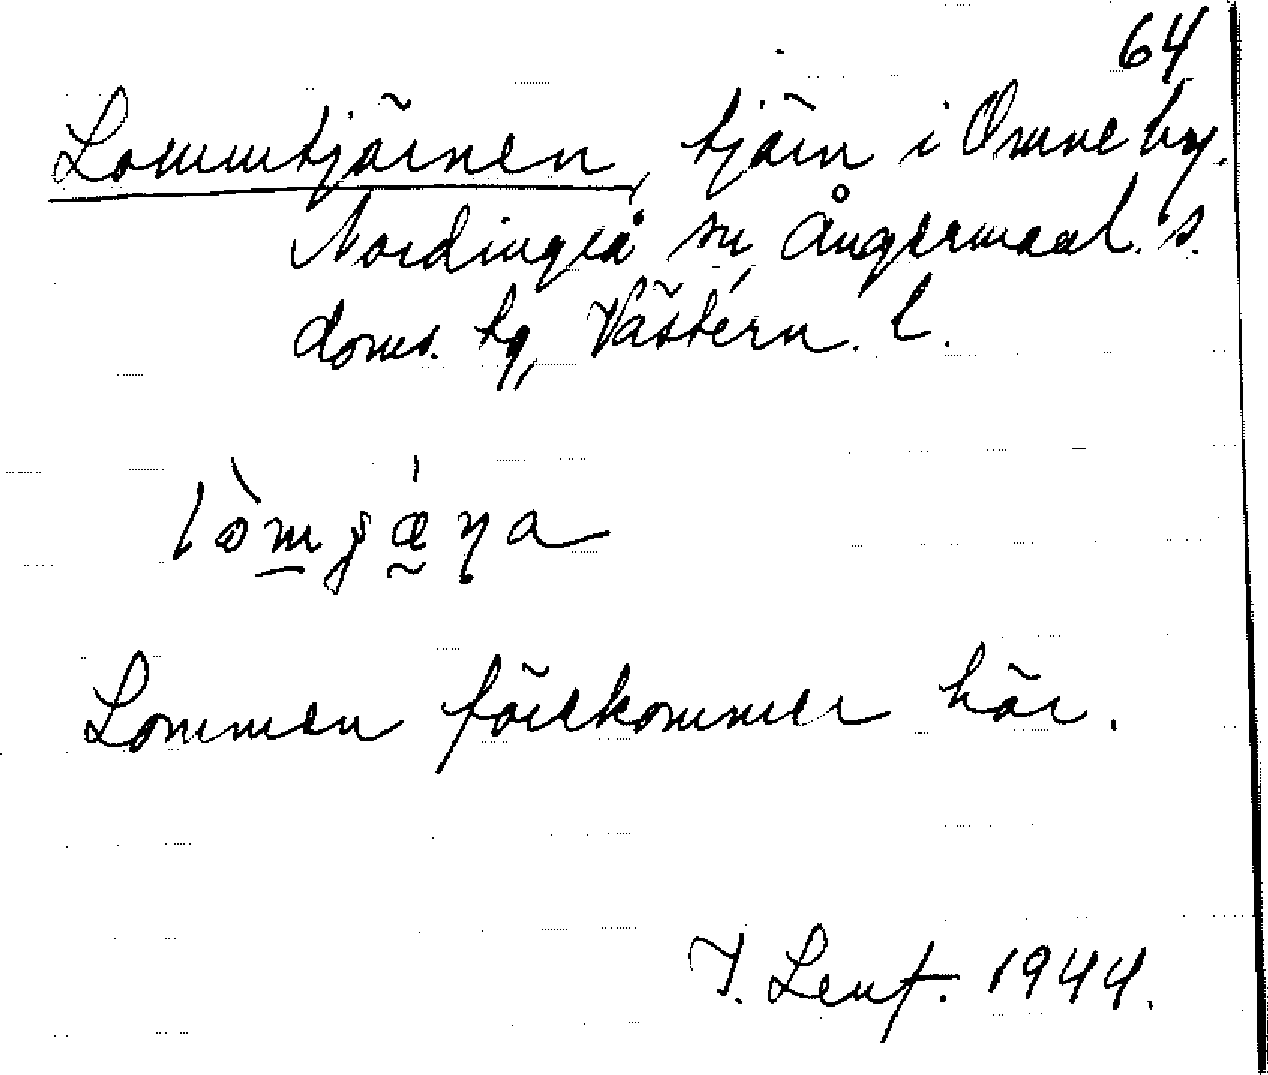 64
Lommtjärnen, tjärn i Omne by.
Nordingrå sn Ångermanl. s.
doms. tg, Västern. l.
Lommen förekommer här.
1944.